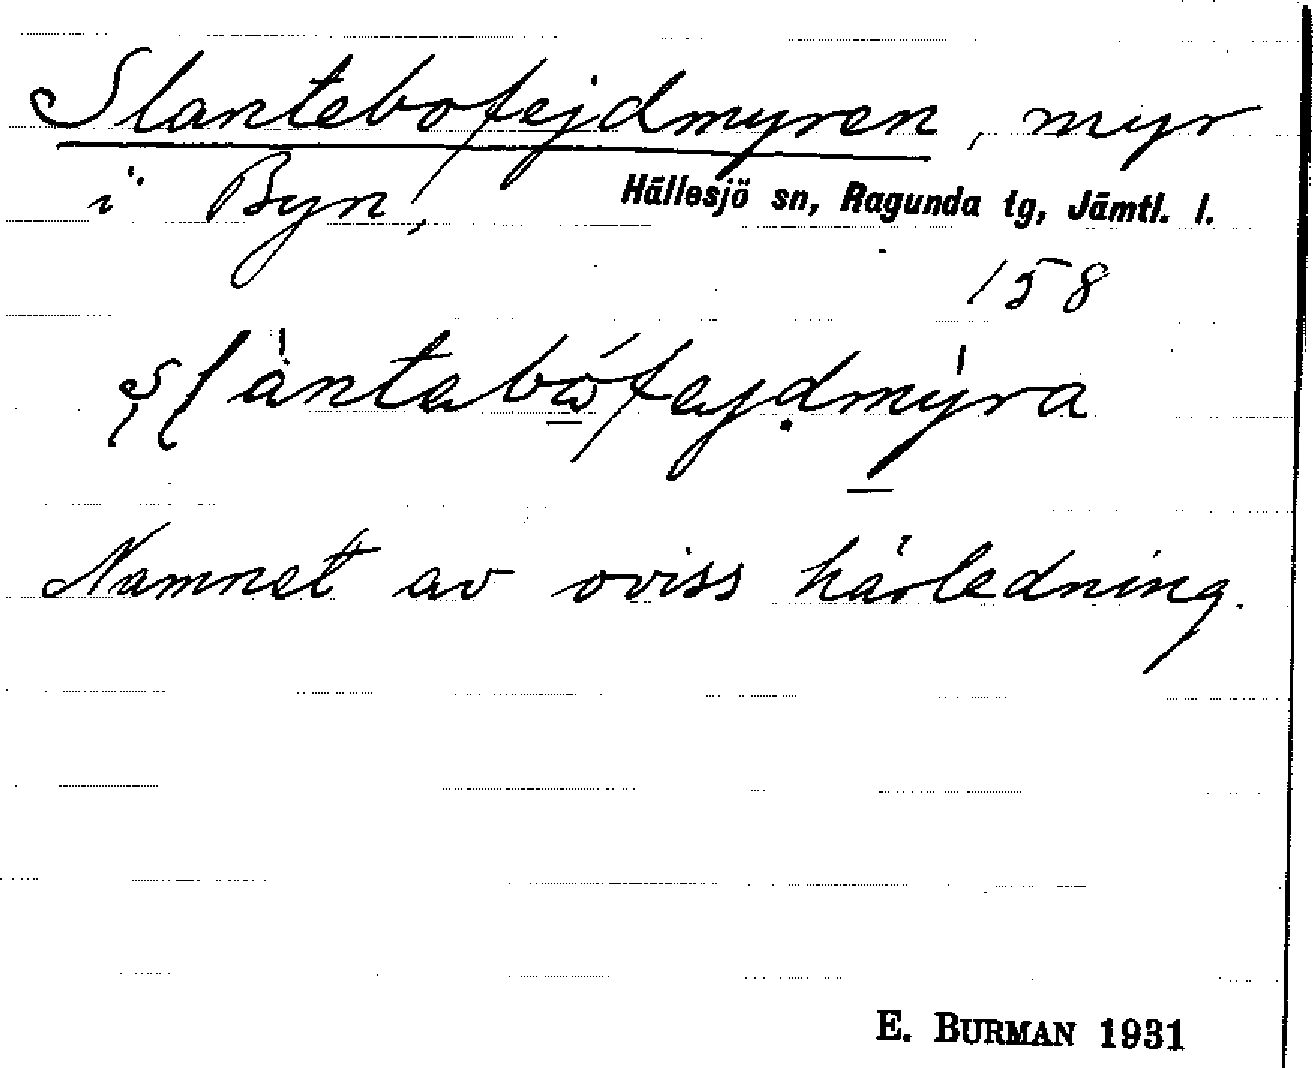 Slantebofejdmyren, myr
i Byn, Hällesjö sn, Ragunda tg, Jämtl. l.
158
Namnet av oviss härledning.
E. BURMAN 1931